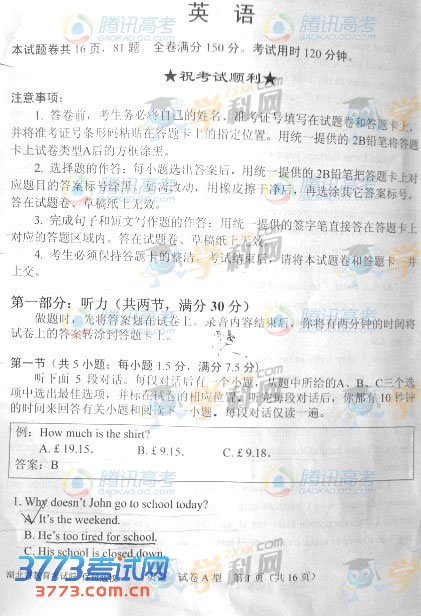 英 语
本试题卷共 16 页，81 题。全卷满分 150 分。考试用时 120 分钟。
★祝考试顺利★
注意事项：
1. 答卷前，考生务必将自己的姓名、准考证号填写在试题卷和答题卡上，
并将准考证号条形码粘贴在答题卡上的指定位置。用统一提供的 2B铅笔将答题
卡上试卷类型A后的方框涂黑。
2. 选择题的作答：每小题选出答案后，用统一提供的 2B铅笔把答题卡上对
应题目的答案标号涂黑。如需改动，用橡皮擦干净后，再选涂其它答案标号。
答在试题卷、草稿纸上无效。
3. 完成句子和短文写作题的作答：用统一提供的签字笔直接答在答题卡上
对应的答题区域内。答在试题卷、草稿纸上无效。
4. 考生必须保持答题卡的整洁。考试结束后，请将本试题卷和答题卡一并
上交。
第一部分：听力（共两节，满分 30 分）
做题时，先将答案划在试卷上。录音内容结束后，你将有两分钟的时间将
试卷上的答案转涂到答题卡上。
第一节（共 5 小题；每小题 1.5 分，满分 7.5 分）
听下面 5 段对话。每段对话后有一个小题，从题中所给的A、B、C三个选
项中选出最佳选项，并标在试卷的相应位置。听完每段对话后，你都有 10 秒钟
的时间来回答有关小题和阅读下一小题。每段对话仅读一遍。
例：How much is the shirt?
A. £ 19.15. B. £ 9.15. C. £ 9.18.
答案：B
1. Why doesn't John go to school today?
A. It's the weekend.
B. He's too tired for school.
C. His school is closed down.
试卷 A 型 第 1 页（共 16 页）
3773考试网
www.3773.com.cn
腾讯高考
GAOKAO.QQ.COM
学科网